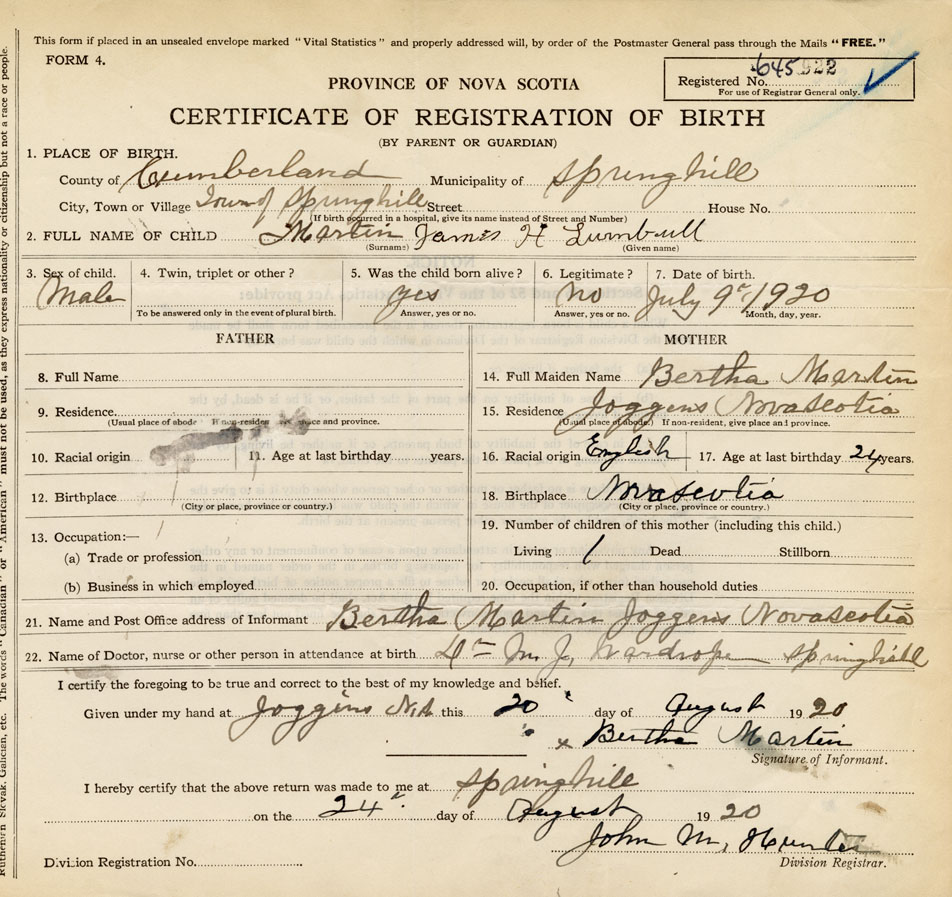 This form if placed in an unsealed envelope marked "Vital Statistics" and properly addressed will, by order of the Postmaster General pass through the Mails "FREE."
FORM 4.
PROVINCE OF NOVA SCOTIA
Registered No. 645922
For use of Registrar General only.
CERTIFICATE OF REGISTRATION OF BIRTH
(BY PARENT OR GUARDIAN)
1. PLACE OF BIRTH.
County of Cumberland Municipality of Springhill
City, Town or Village Town of Springhill Street House No.
(If birth occurred in a hospital, give its name instead of Street and Number)
2. FULL NAME OF CHILD Martin James H Turnbull
(Surname) (Given name)
3. Sex of child. 4. Twin, triplet or other? 5. Was the child born alive? 6. Legitimate? 7. Date of birth.
Male yes No July 9th 1920
To be answered only in the event of plural birth. Answer, yes or no. Answer, yes or no. Month, day, year.
FATHER MOTHER
8. Full Name 14. Full Maiden Name Bertha Martin
9. Residence. 15. Residence Joggens Novascotia
(Usual place of abode If non-resident place and province. (Usual place of abode.) If non-resident, give place and province.
10. Racial origin 11. Age at last birthday years. 16. Racial origin English 17. Age at last birthday 24 years.
12. Birthplace 18. Birthplace Novascotia
(City or place, province or country.) (City or place, province or country.)
13. Occupation:— 19. Number of children of this mother (including this child.)
(a) Trade or profession Living 1 Dead Stillborn
(b) Business in which employed 20. Occupation, if other than household duties
21. Name and Post Office address of Informant Bertha Martin Joggens Novascotia
22. Name of Doctor, nurse or other person in attendance at birth Dr M. J. Wardrope Springhill
I certify the foregoing to be true and correct to the best of my knowledge and belief.
Given under my hand at Joggins N.S. this 20 day of August 1920
x Bertha Martin
Signature of Informant.
I hereby certify that the above return was made to me at Springhill
on the 24" day of August 1920
John M, Hunter
Division Registration No. Division Registrar.
Ruthenian Slovak, Galician, etc. The words "Canadian" or "American" must not be used, as they express nationality or citizenship but not a race or people.